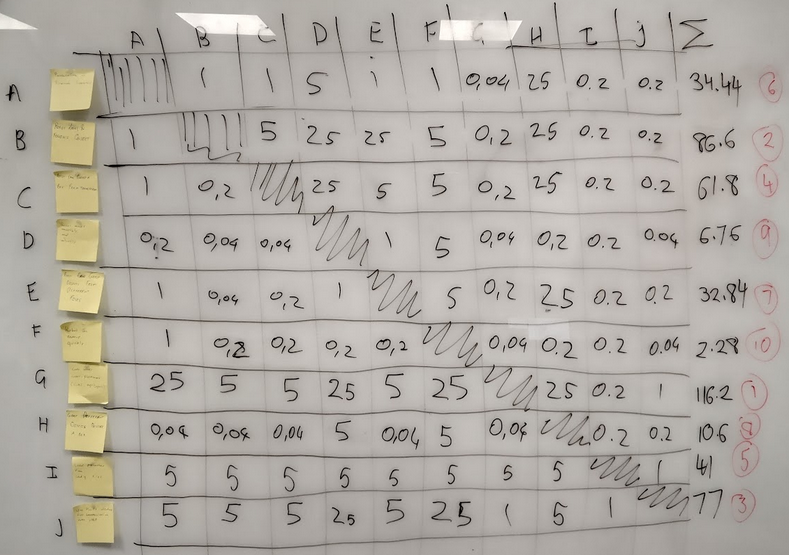 A B C D E F G H I J Σ
A 1 1 5 1 1 0,04 25 0.2 0.2 34.44 6
B 1 5 25 25 5 0,2 25 0.2 0.2 86.6 2
C 1 0,2 25 5 5 0,2 25 0.2 0.2 61.8 4
D 0,2 0,04 0,04 1 5 0,04 0,2 0.2 0.04 6.76 9
E 1 0,04 0,2 1 5 0,2 25 0.2 0.2 32.84 7
F 1 0,2 0,2 0,2 0,2 0,04 0.2 0.2 0.04 2.28 10
G 25 5 5 25 5 25 25 0.2 1 116.2 1
H 0,04 0,04 0,04 5 0,04 5 0,04 0.2 0.2 10.6 8
I 5 5 5 5 5 5 5 5 1 41 5
J 5 5 5 25 5 25 1 5 1 77 3